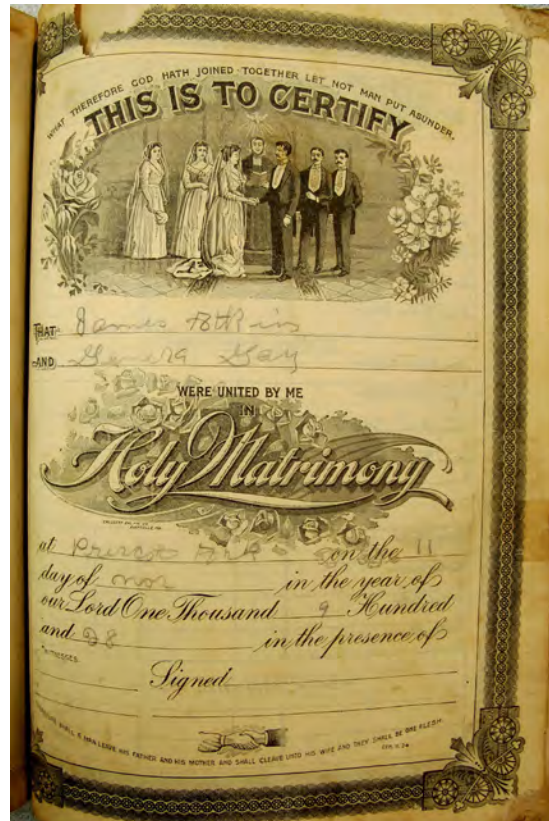 WHAT THEREFORE GOD HATH JOINED TOGETHER LET NOT MAN PUT ASUNDER.
THIS IS TO CERTIFY
THAT James Atkins
AND Gay
WERE UNITED BY ME
IN
Holy Matrimony
at on the 11
day of nov in the year of
our Lord One Thousand 9 Hundred
and 28 in the presence of
WITNESSES
Signed
SHALL A MAN LEAVE HIS FATHER AND HIS MOTHER AND SHALL CLEAVE UNTO HIS WIFE AND THEY SHALL BE ONE FLESH.